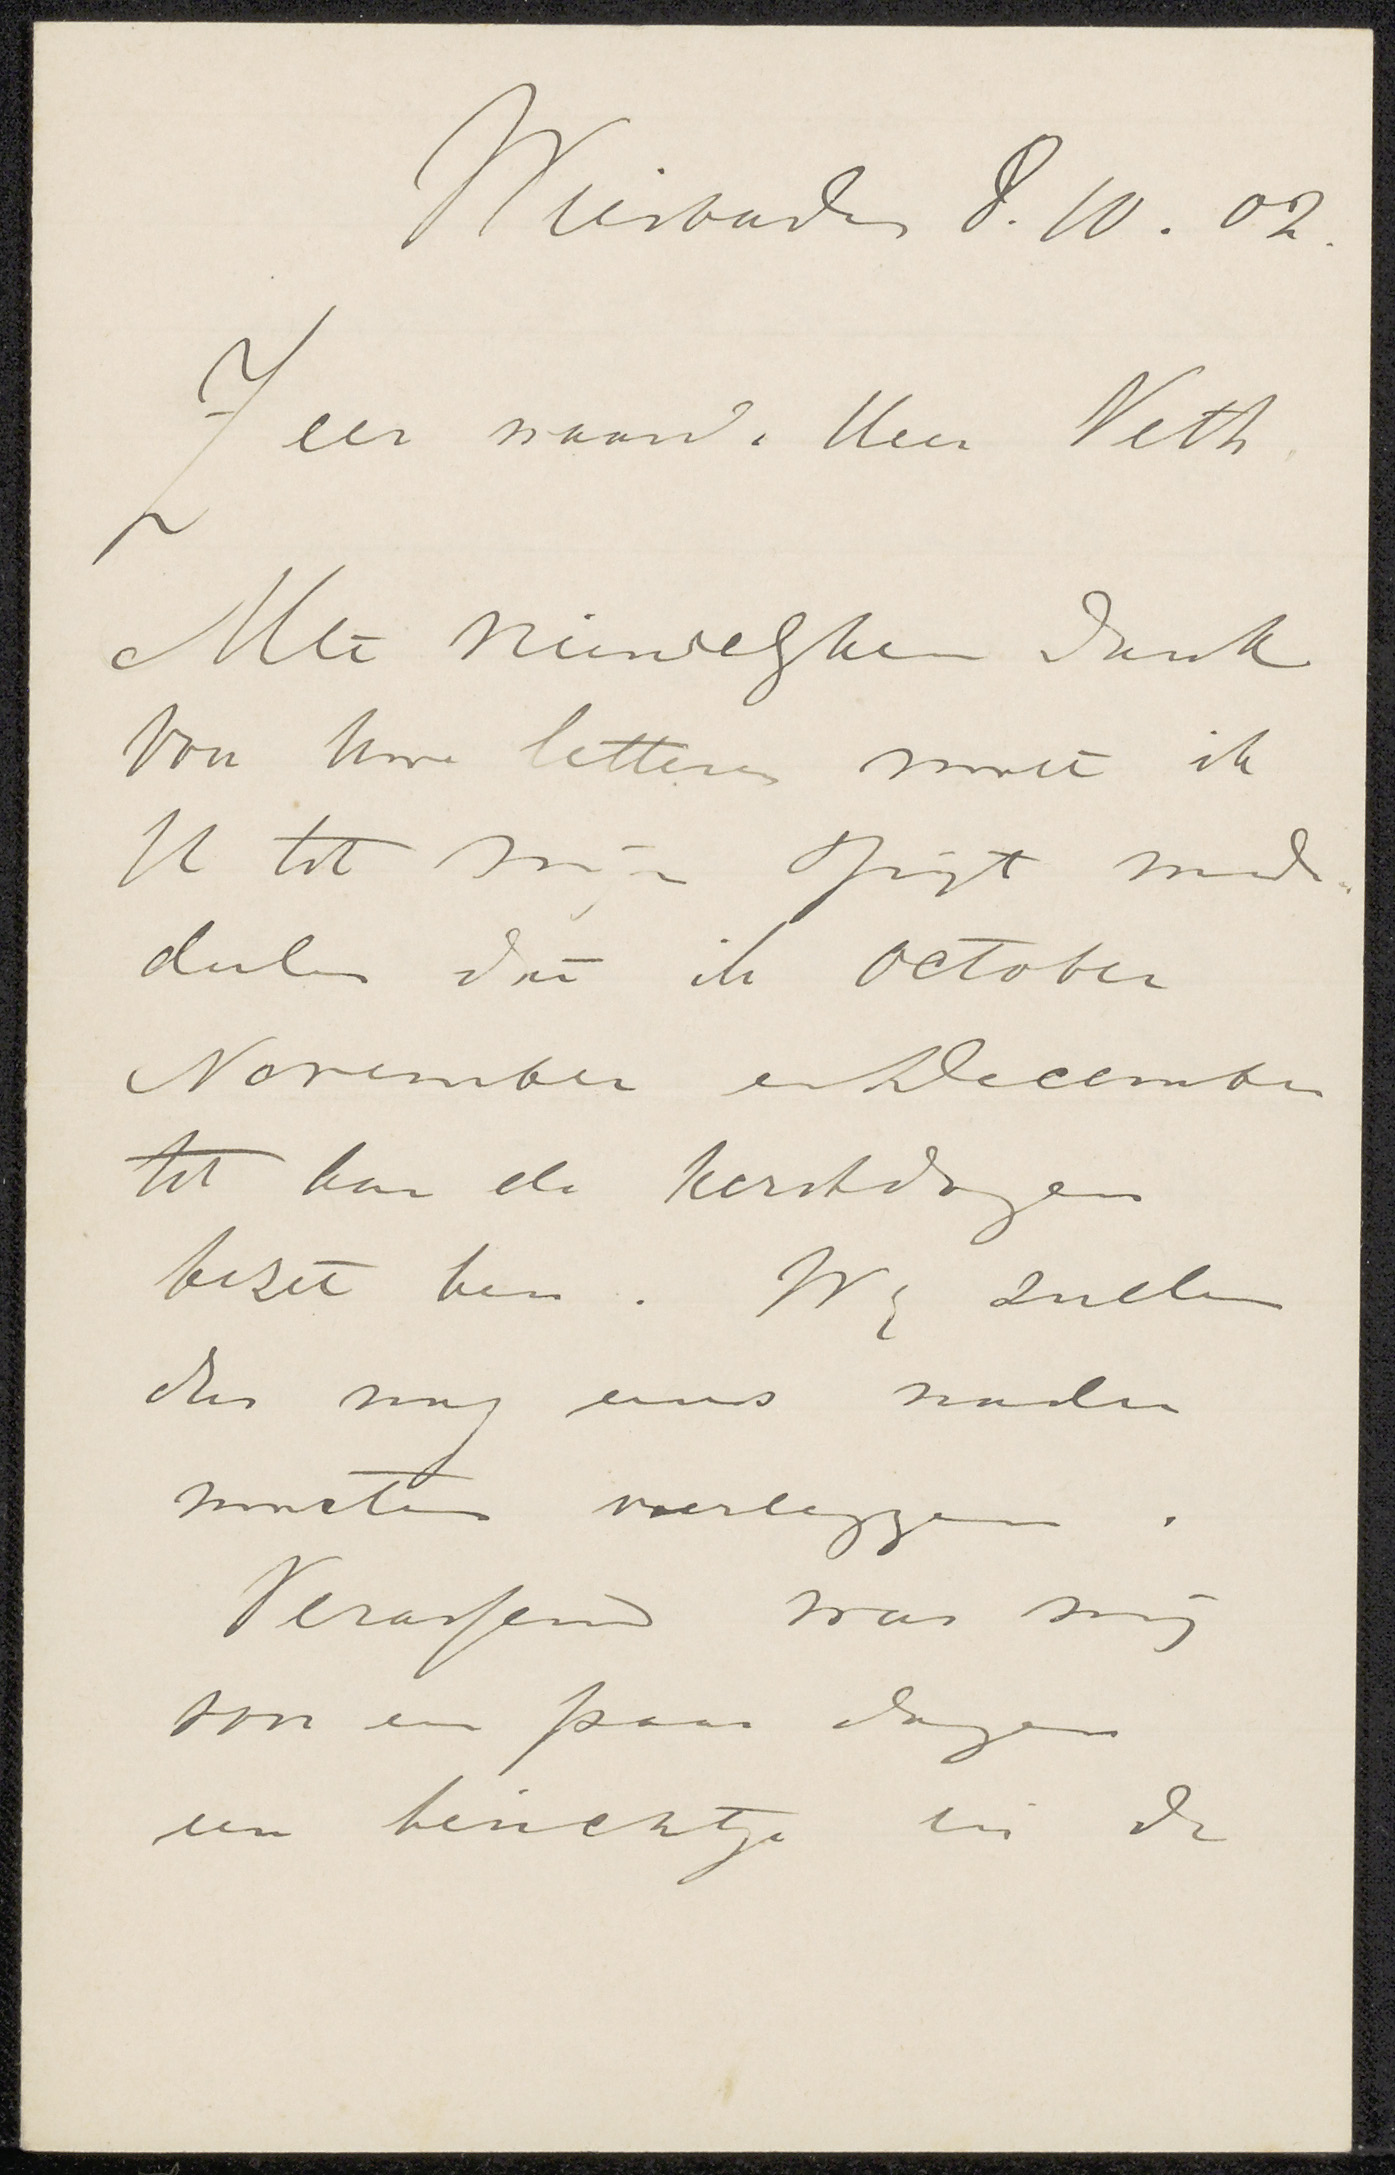 Wiesbaden 8.10.02.
Zeer waarde Heer Veth
Met vriendelyken dank
voor Uwe letteren moet ik
U tot mijn spijt mede-
deelen dat ik october
November en December
tot aan de kerstdagen
bezet ben. Wij zullen
dus nog eens nader
moeten overleggen.
Verassend was mij
voor een paar dagen
een berichtje in de